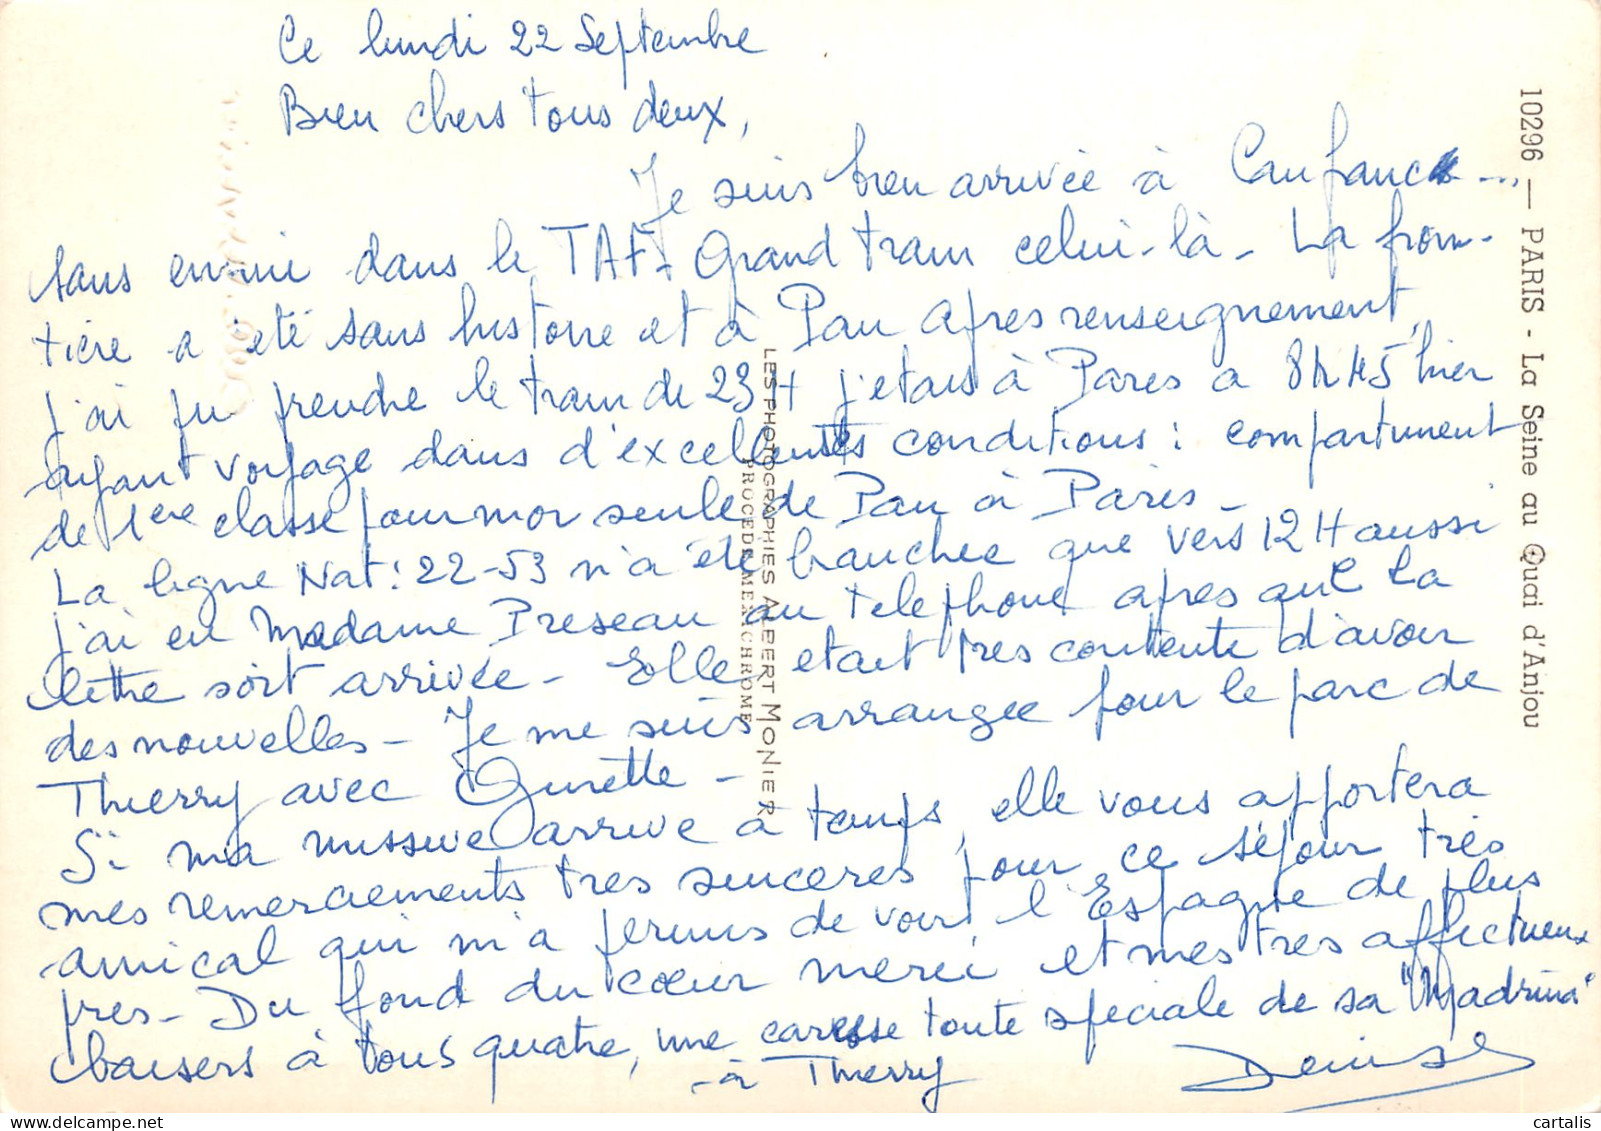 Ce lundi 22 Septembre
Bien chers tous deux,
Je suis bien arrivée à Canfranc ...
sans ennui dans le TAF - Grand train celui-là - La fron-
tière a été sans histoire et à Pau après renseignement,
j'ai pu prendre le train de 23 H j'étais à Paris à 8h45 hier
ayant voyagé dans d'excellentes conditions : compartiment
de 1ère classe pour moi seule de Pau à Paris -
La ligne Nat: 22-53 n'a été branchée que vers 12 H aussi
j'ai eu Madame Preseau au telephone après que la
lettre soit arrivée - Elle était très contente d'avoir
des nouvelles - Je me suis arrangée pour le parc de
Thierry avec Ginette -
Si ma missive arrive à temps, elle vous apportera
mes remerciements très sincères pour ce séjour très
amical qui m'a permis de voir l'Espagne de plus
près - Du fond du coeur merci et mes très affectueux
baisers à tous quatre, une caresse toute spéciale de sa "Madrina"
à Thierry
Denise
10296 — PARIS - La Seine au Quai d'Anjou
LES PHOTOGRAPHIES ALBERT MONIER
PROCÉDÉ MEXICHROME
cartalis
delcampe.net